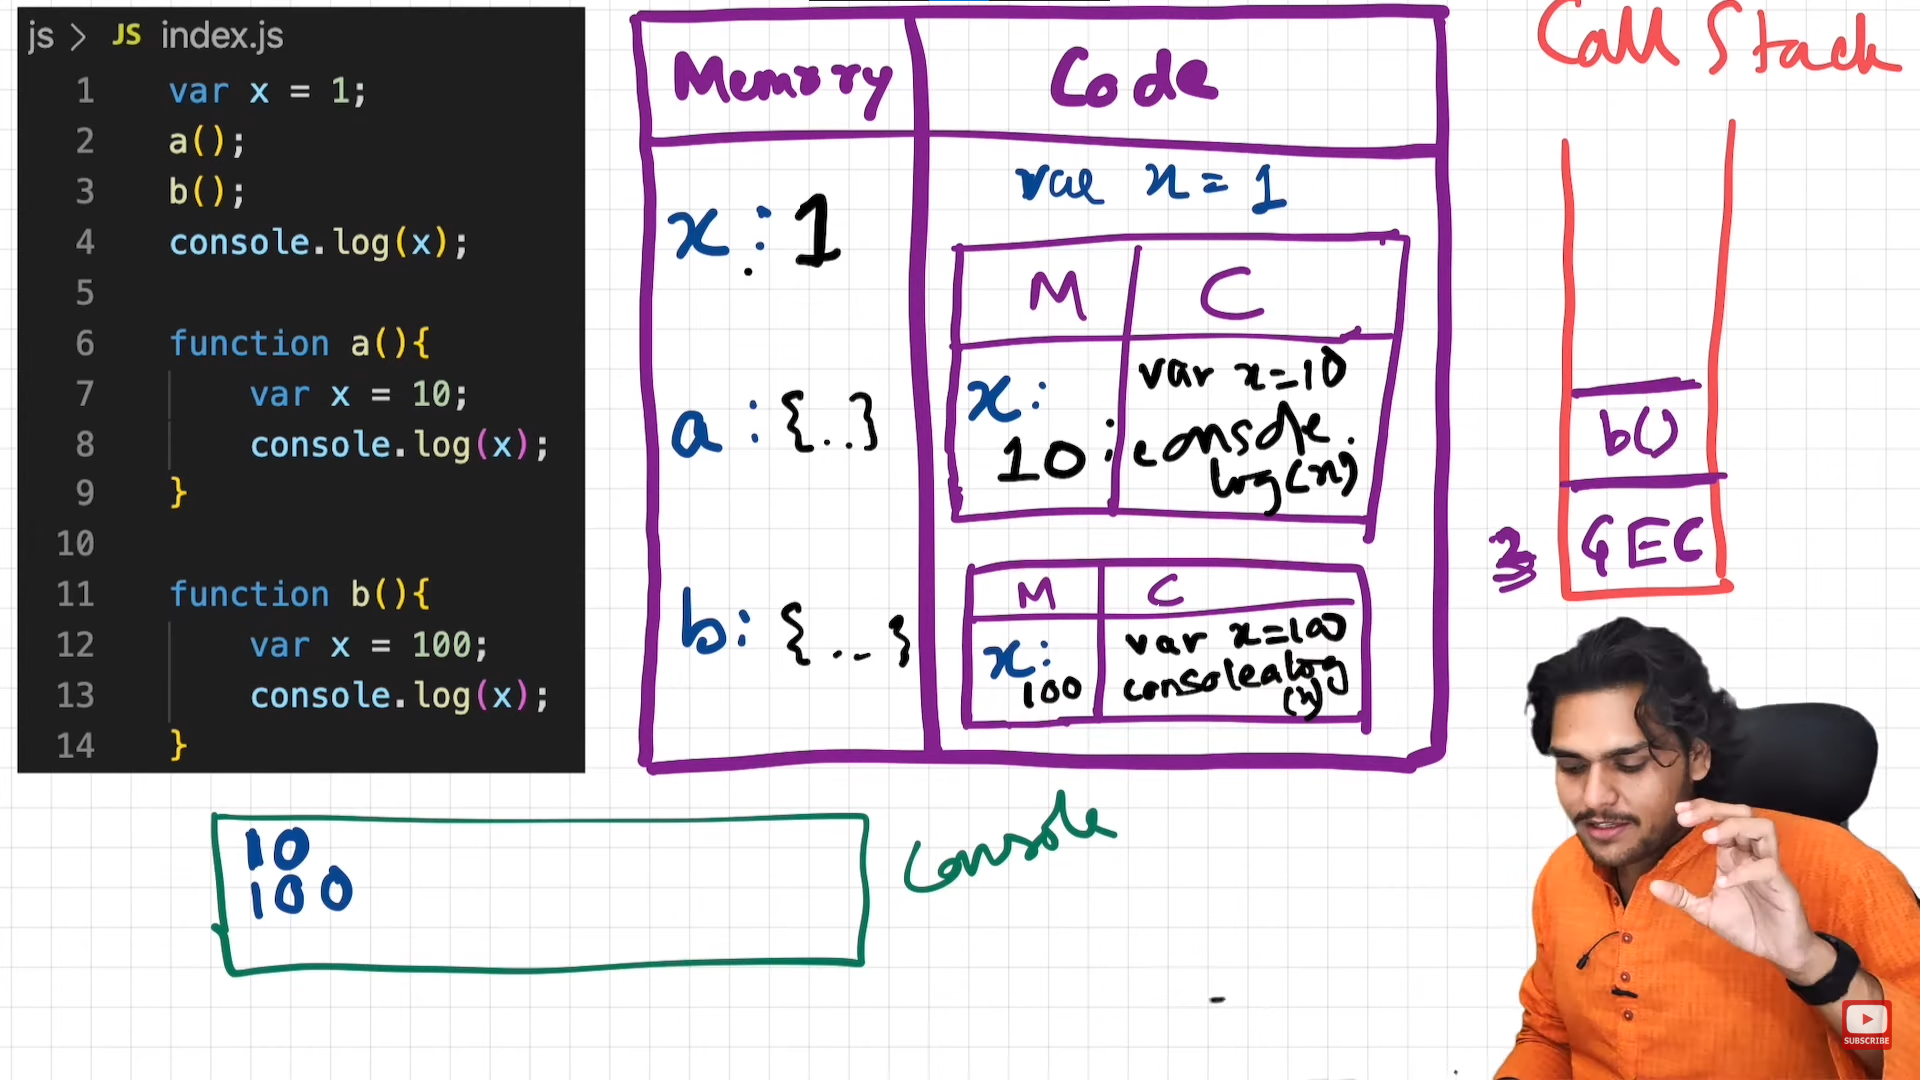 js > JS index.js
1 var x = 1;
2 a();
3 b();
4 console.log(x);
5
6 function a(){
7 var x = 10;
8 console.log(x);
9 }
10
11 function b(){
12 var x = 100;
13 console.log(x);
14 }
Memory
Code
x : 1
a : {..}
b: {..}
var x = 1
M
C
x:
10
var x=10
console.
log(x)
M
C
x:
100
var x=100
console.log
(x)
Call Stack
b()
GEC
10
100
Console
SUBSCRIBE